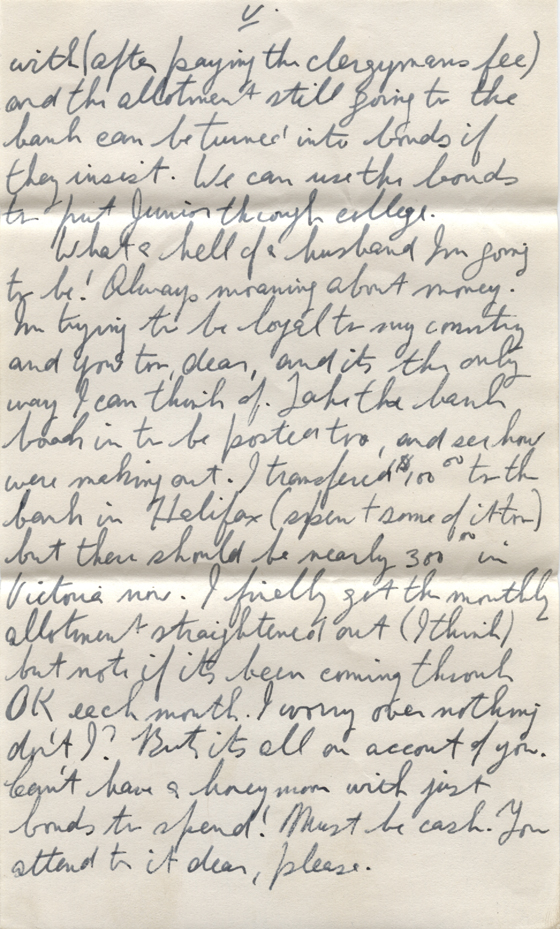 V.
with (after paying the clergymans fee)
and the allotment still going to the
bank can be turned into bonds if
they insist. We can use the bonds
to put Junior through college.
What a hell of a husband Im going
to be! Always moaning about money.
Im trying to be loyal to my country
and you too, dear, and its the only
way I can think of. Take the bank
book in to be posted too, and see how
were making out. I transfered $100 00 to the
bank in Halifax (spent some of it too)
but there should be nearly 300 00 in
Victoria now. I finally got the monthly
allotment straightened out (I think)
but note if its been coming through
OK each month. I worry over nothing
don't I? But its all on account of you.
Can't have a honeymoon with just
bonds to spend! Must be cash. You
attend to it dear, please.